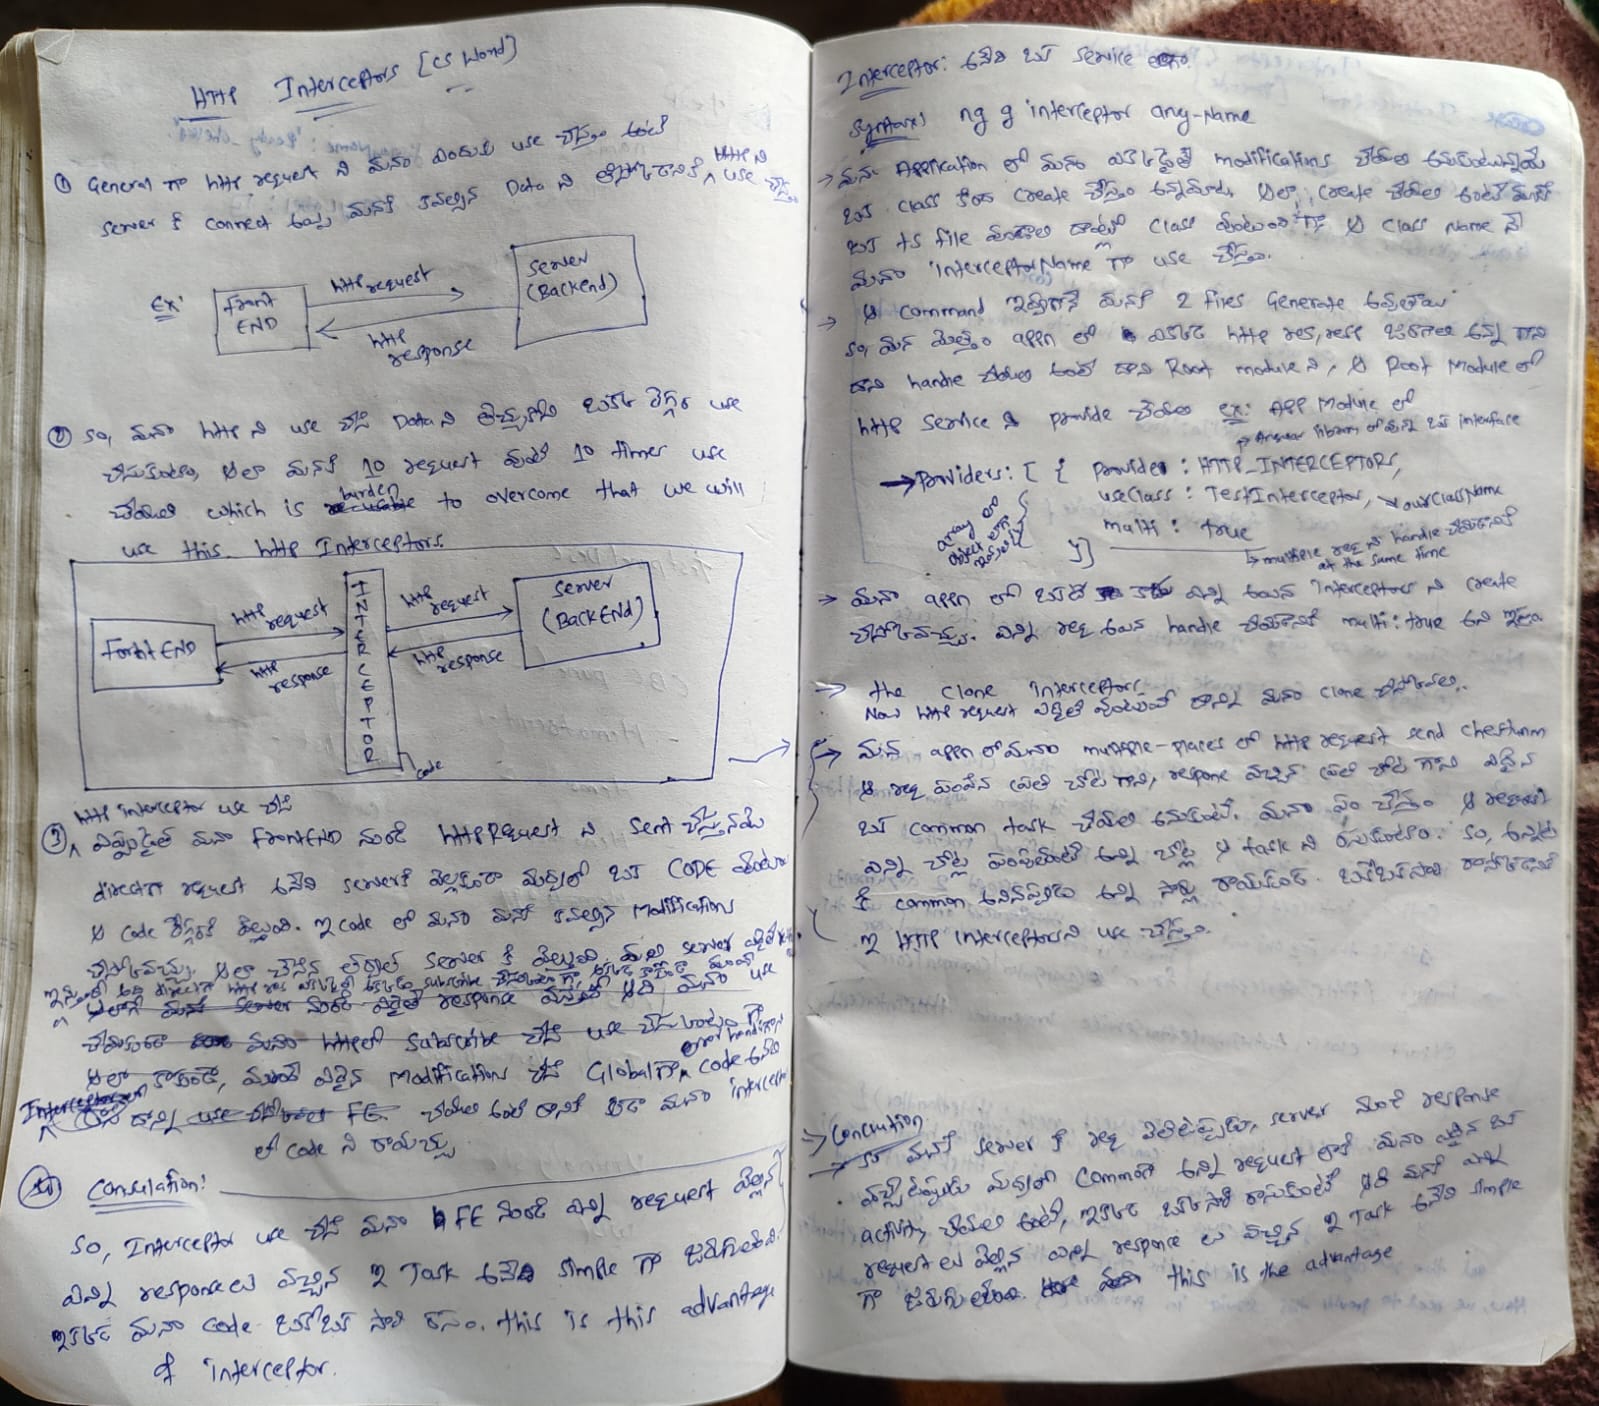 HTTP Interceptors [CS Word]
① General గా http request ని మనం ఎందుకు use చేస్తాం అంటే
server కి connect అయ్యి మనకి కావల్సిన Data ని తీస్కోడానికి HTTP ని use చేస్తాం
Ex:
Front END
http request
http response
Server (Backend)
② so, మనం http ని use చేసి Data ని తెచ్చుకొని ఒకచోట దగ్గర use
చేసుకుంటాం, అలా మనకి 10 request వుంటే 10 times use
చేయాలి which is burden to overcome that we will
use this http Interceptors.
Front END
http request
http response
INTERCEPTOR
http request
http response
Server (BackEnd)
code
http interceptor use చేసి
③ ఎప్పుడైతే మనం FrontEND నుండి http Request ని sent చేస్తున్నామో
direct గా request అనేది serverకి వెళ్లకుండా మధ్యలో ఒక CODE వుంటుంది
ఆ code దగ్గరికి వెళ్తుంది. ఇ code లో మనం మనకి కావల్సిన Modifications
చేస్కోవచ్చు. అలా చేసిన తర్వాత server కి వెళ్తుంది.
మనం http లో subscribe చేసి use
అలా కాకుండా, ముందే ఏదైన Modifications చేసి Global గా error handling code
చేయాలి అంటే దానికి కూడా మనం interceptor
లో code ని రాయచ్చు
④ Conculation:
so, Interceptor use చేసి మనం FE నుండి ఎన్ని request వెళ్లిన
ఎన్ని response లు వచ్చిన ఇ Task అనేది simple గా జరుగుతుంది.
ఇక్కడ మనం code ఒకేఒక సారి రాస్తాం. this is this advantage
of interceptor.
Interceptor: అనేది ఒక service లాగా.
Syntax: ng g interceptor any-Name
→ మన Application లో మనం ఎక్కడైతే modifications చేయాలి అనుకుంటున్నామో
ఒక class కింద create చేస్తాం అన్నమాట. అలా create చేయాలి అంటే మనకి
ఒక ts file వుండాలి దాంట్లో class వుంటుంది గా ఆ class Name నే
మనం 'interceptorName' గా use చేస్తాం.
→ ఆ command ఇవ్వగానే మనకి 2 files Generate అవుతాయి
so, మన మొత్తం appn లో ఎక్కడ http req, resp జరగాలి అన్న గాని
దాని handle చేయాలి అంటే దాని Root module ని, ఆ Root Module లో
http service ని provide చేయాలి ex: APP Module లో
→ Angular library లో వున్న ఒక interface
→ Providers: [ { provide : HTTP_INTERCEPTORS,
useClass : TestInterceptor, → ourClassName
multi : true
}]
array లో object లాగా
→ multiple req ని handle చేయడానికి at the same time
→ మనం appn లో ఒకటే కాదు ఎన్ని అయిన interceptors ని create
చేస్కోవచ్చు. ఎన్ని req అయిన handle చేయడానికి multi: true అని ఇస్తాం.
→ the clone interceptors
Now http request ఏదైతే వుంటుందో దాన్ని మనం clone చేస్కోవాలి.
→ మన appn లో మనం multiple-places లో http request send chestunm
ఆ req పంపిన ప్రతి చోట గాని, respone వచ్చిన ప్రతి చోట గాని ఏదైన
ఒక common task చేయాలి అనుకుంటే. మనం ఏం చేస్తాం ఆ request
ఎన్ని చోట్ల పంపుతుంటే అన్ని చోట్ల ఆ task ని రాసుకుంటాం. so, అన్నిటి
కి common అయినప్పుడు అన్ని సార్లు రాయకుండ. ఒకేఒకసారి రాస్కోడానికి
ఇ HTTP interceptors ని use చేస్తాం.
→ Conclution
→ so మనకి server కి req పెట్టేటప్పుడు, server నుండి response
వచ్చేటప్పుడు మధ్యలో Common గా అన్ని request లకి మనం ఏదైన ఒక
activity చేయాలి అంటే, ఇక్కడ ఒక్క సారి రాసుకుంటే అది మనకి ఎన్ని
request లు వెళ్లిన ఎన్ని response లు వచ్చిన ఇ Task అనేది simple
గా జరుగుతుంది. this is the advantage